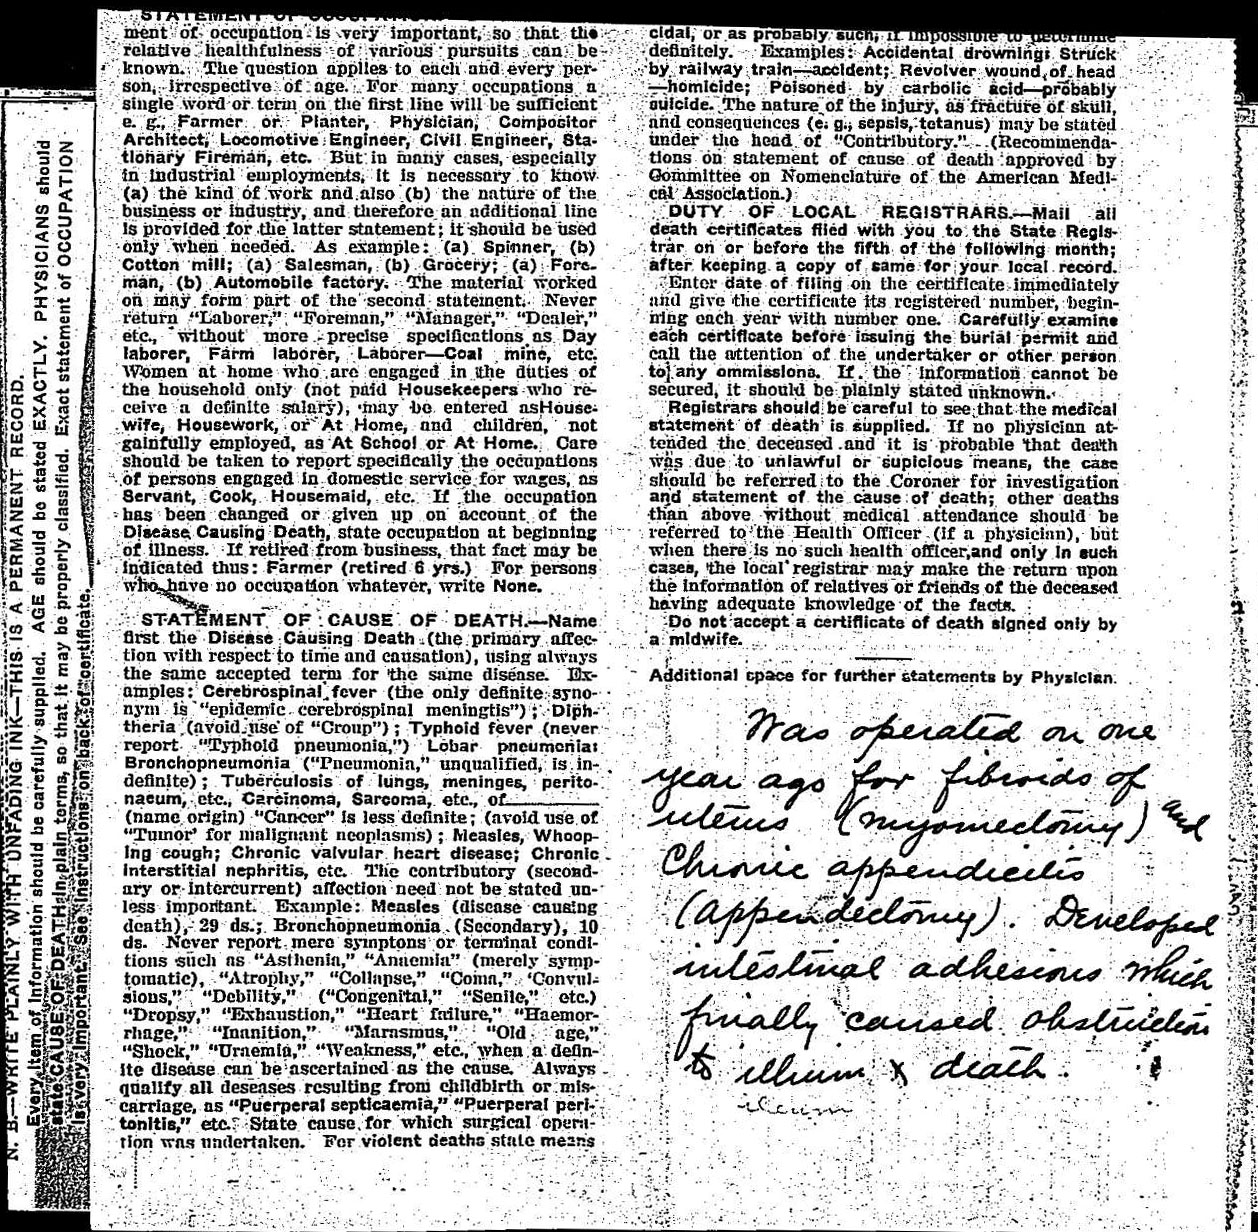 N. B.—WRITE PLAINLY WITH UNFADING INK—THIS IS A PERMANENT RECORD.
Every item of information should be carefully supplied. AGE should be stated EXACTLY. PHYSICIANS should
state CAUSE OF DEATH in plain terms, so that it may be properly classified. Exact statement of OCCUPATION
is very important. See instructions on back of certificate.
STATEMENT OF
ment of occupation is very important, so that the
relative healthfulness of various pursuits can be
known. The question applies to each and every per-
son, irrespective of age. For many occupations a
single word or term on the first line will be sufficient
e. g., Farmer or Planter, Physician, Compositor
Architect, Locomotive Engineer, Civil Engineer, Sta-
tionary Fireman, etc. But in many cases, especially
in industrial employments, it is necessary to know
(a) the kind of work and also (b) the nature of the
business or industry, and therefore an additional line
is provided for the latter statement; it should be used
only when needed. As example: (a) Spinner, (b)
Cotton mill; (a) Salesman, (b) Grocery; (a) Fore-
man, (b) Automobile factory. The material worked
on may form part of the second statement. Never
return "Laborer," "Foreman," "Manager," "Dealer,"
etc., without more precise specifications as Day
laborer, Farm laborer, Laborer—Coal mine, etc.
Women at home who are engaged in the duties of
the household only (not paid Housekeepers who re-
ceive a definite salary), may be entered asHouse-
wife, Housework, or At Home, and children, not
gainfully employed, as At School or At Home. Care
should be taken to report specifically the occupations
of persons engaged in domestic service for wages, as
Servant, Cook, Housemaid, etc. If the occupation
has been changed or given up on account of the
Disease Causing Death, state occupation at beginning
of illness. If retired from business, that fact may be
indicated thus: Farmer (retired 6 yrs.) For persons
who have no occupation whatever, write None.
STATEMENT OF CAUSE OF DEATH.—Name
first the Disease Causing Death (the primary affec-
tion with respect to time and causation), using always
the same accepted term for the same disease. Ex-
amples: Cerebrospinal fever (the only definite syno-
nym is "epidemic cerebrospinal meningtis"); Diph-
theria (avoid use of "Croup"); Typhoid fever (never
report "Typhoid pneumonia,") Lobar pneumonia:
Bronchopneumonia ("Pneumonia," unqualified, is in-
definite); Tuberculosis of lungs, meninges, perito-
naeum, etc., Carcinoma, Sarcoma, etc., of
(name origin) "Cancer" is less definite; (avoid use of
"Tumor' for malignant neoplasms); Measles, Whoop-
ing cough; Chronic valvular heart disease; Chronic
interstitial nephritis, etc. The contributory (second-
ary or intercurrent) affection need not be stated un-
less important. Example: Measles (disease causing
death), 29 ds.; Bronchopneumonia (Secondary), 10
ds. Never report mere symptons or terminal condi-
tions such as "Asthenia," "Anaemia" (merely symp-
tomatic), "Atrophy," "Collapse," "Coma," 'Convul-
sions," "Debility," ("Congenital," "Senile," etc.)
"Dropsy," "Exhaustion," "Heart failure," "Haemor-
rhage," "Inanition," "Marasmus," "Old age,"
"Shock," "Uraemia," "Weakness," etc., when a defin-
ite disease can be ascertained as the cause. Always
qualify all deseases resulting from childbirth or mis-
carriage, as "Puerperal septicaemia," "Puerperal peri-
tonitis," etc. State cause for which surgical opera-
tion was undertaken. For violent deaths state means
cidal, or as probably such, if impossible to determine
definitely. Examples: Accidental drowning; Struck
by railway train—accident; Revolver wound of head
—homicide; Poisoned by carbolic acid—probably
suicide. The nature of the injury, as fracture of skull,
and consequences (e. g., sepsis, tetanus) may be stated
under the head of "Contributory." (Recommenda-
tions on statement of cause of death approved by
Committee on Nomenclature of the American Medi-
cal Association.)
DUTY OF LOCAL REGISTRARS.—Mail all
death certificates filed with you to the State Regis-
trar on or before the fifth of the following month;
after keeping a copy of same for your local record.
Enter date of filing on the certificate immediately
and give the certificate its registered number, begin-
ning each year with number one. Carefully examine
each certificate before issuing the burial permit and
call the attention of the undertaker or other person
to any ommissions. If the information cannot be
secured, it should be plainly stated unknown.
Registrars should be careful to see that the medical
statement of death is supplied. If no physician at-
tended the deceased and it is probable that death
was due to unlawful or supicious means, the case
should be referred to the Coroner for investigation
and statement of the cause of death; other deaths
than above without medical attendance should be
referred to the Health Officer (if a physician), but
when there is no such health officer,and only in such
cases, the local registrar may make the return upon
the information of relatives or friends of the deceased
having adequate knowledge of the facts.
Do not accept a certificate of death signed only by
a midwife.
Additional space for further statements by Physician.
Was operated on one
year ago for fibroids of
uterus (myomectomy) and
Chronic appendicitis
(appendectomy). Developed
intestinal adhesions which
finally caused obstruction
to illium & death.
ileum